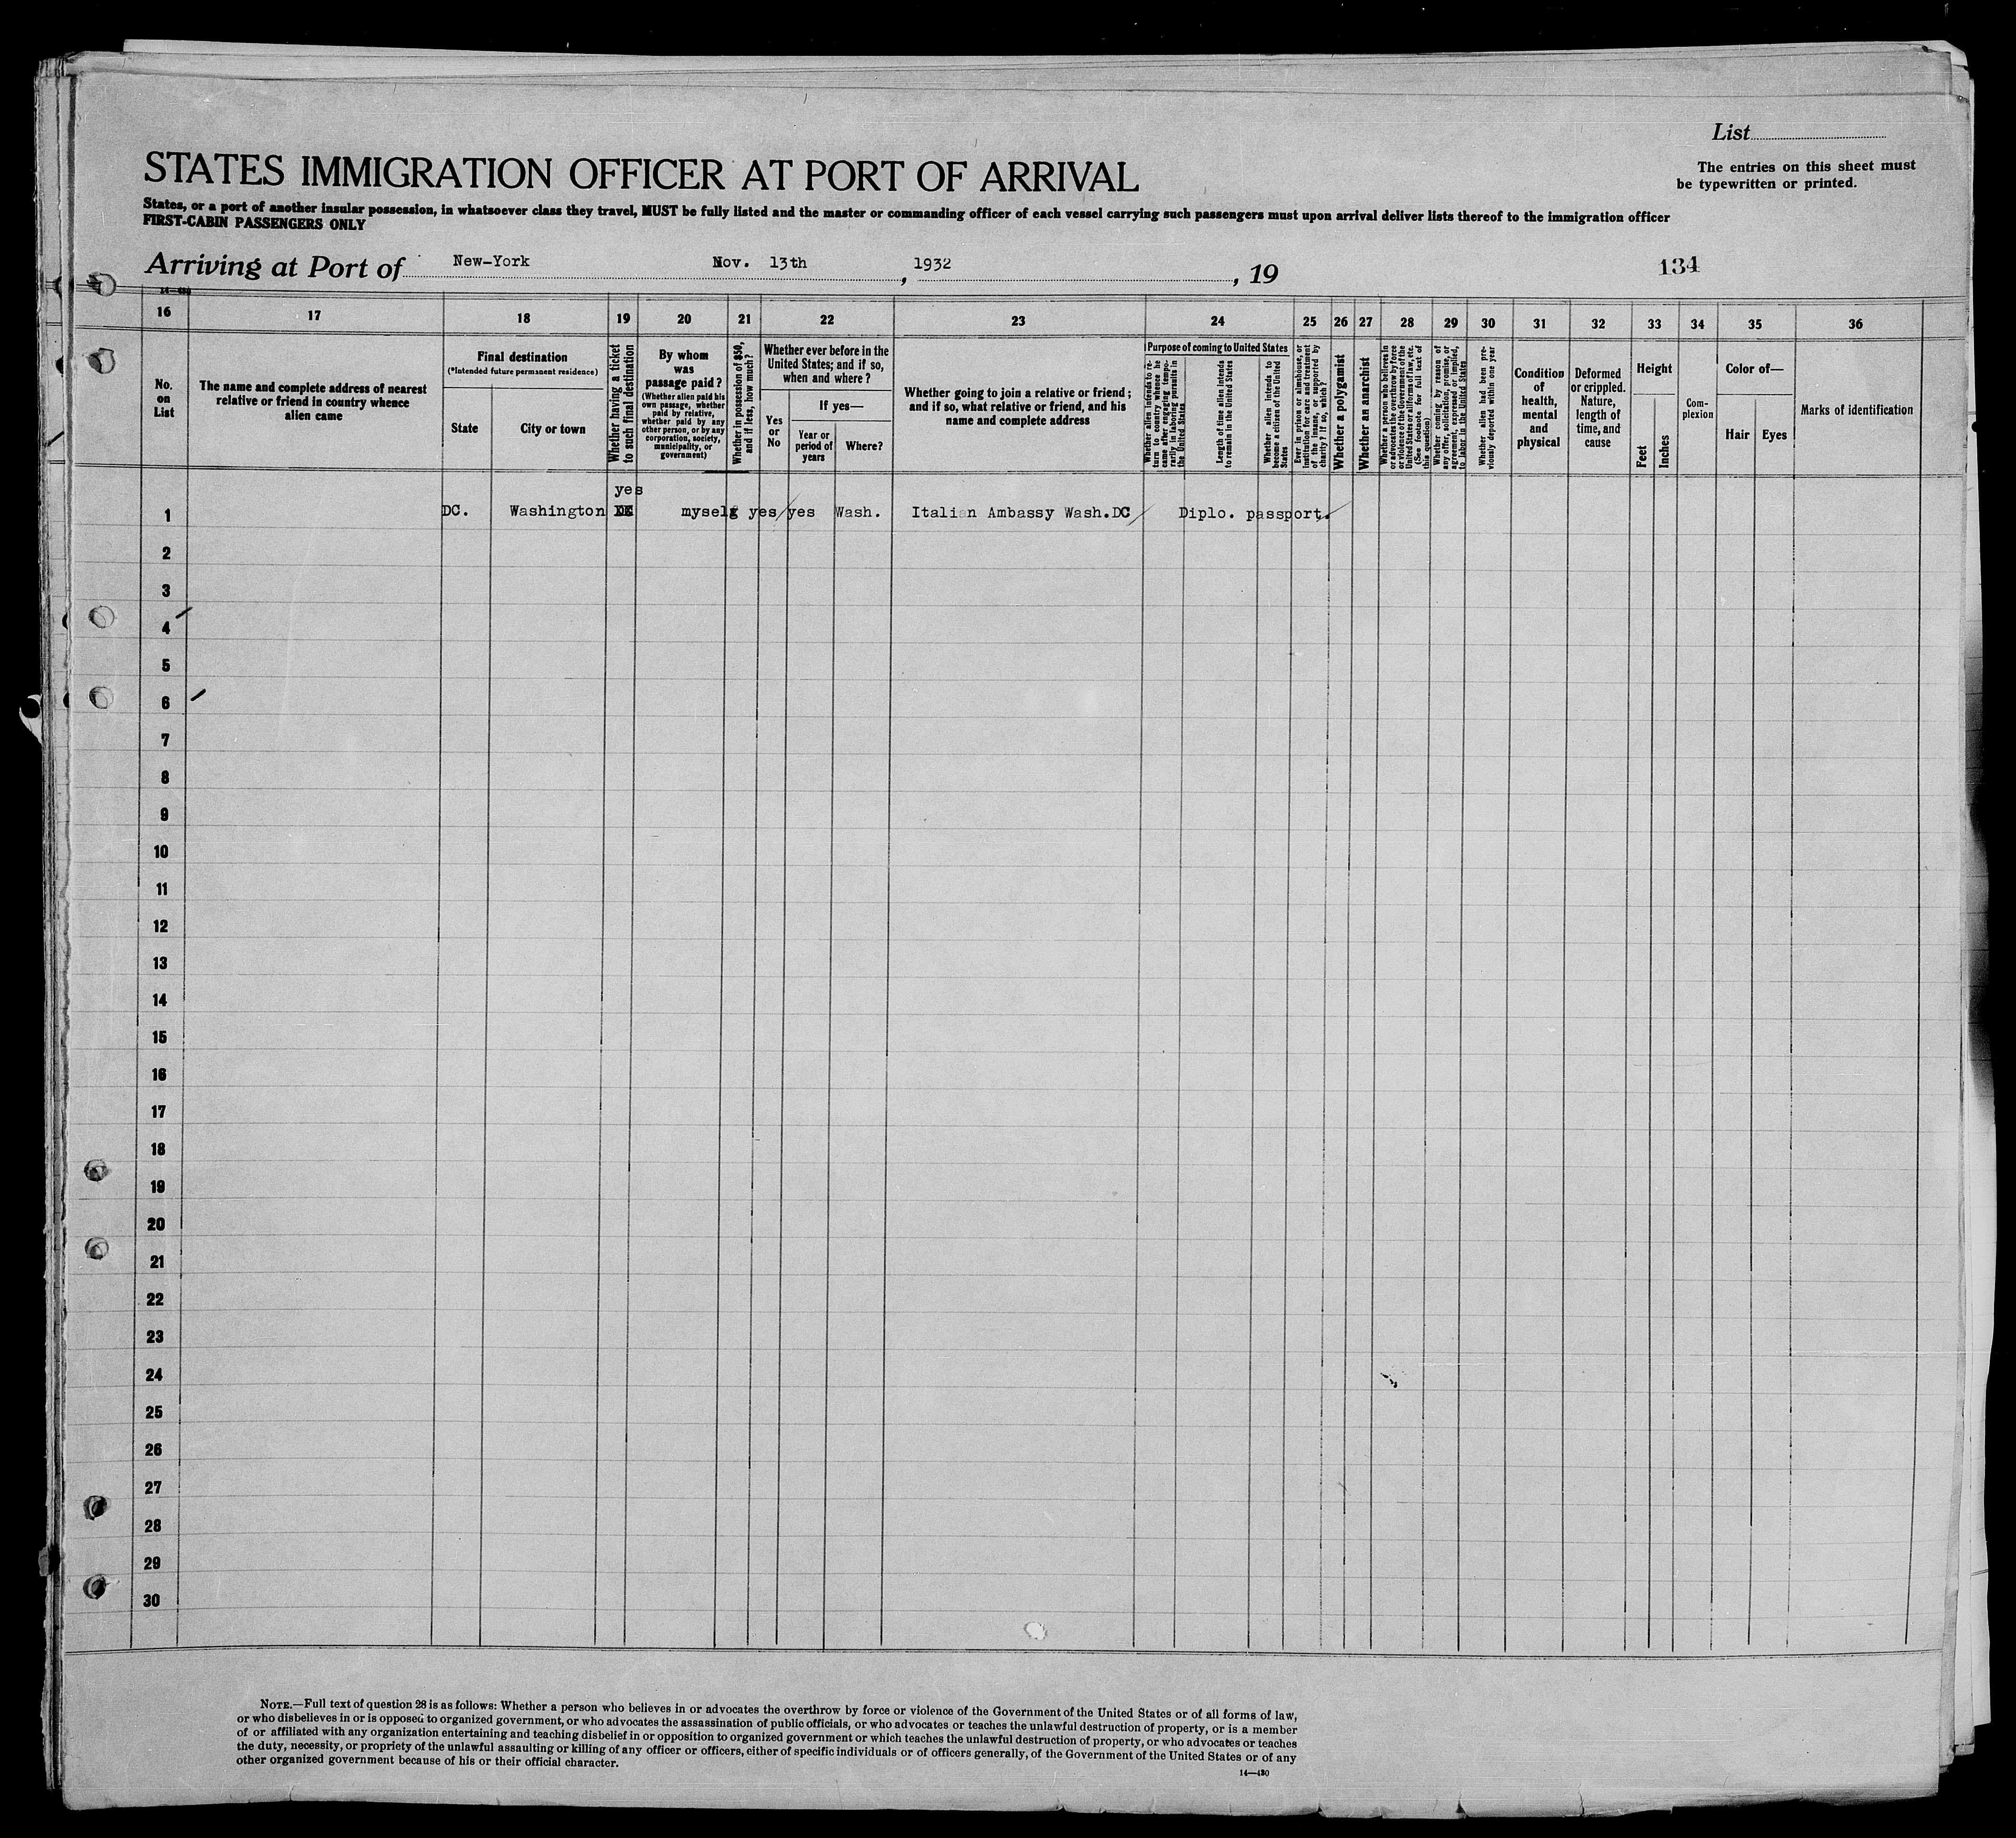 List
STATES IMMIGRATION OFFICER AT PORT OF ARRIVAL
The entries on this sheet must
be typewritten or printed.
States, or a port of another insular possession, in whatsoever class they travel, MUST be fully listed and the master or commanding officer of each vessel carrying such passengers must upon arrival deliver lists thereof to the immigration officer
FIRST-CABIN PASSENGERS ONLY
Arriving at Port of New-York Nov. 13th, 1932, 19
134
16 17 18 19 20 21 22 23 24 25 26 27 28 29 30 31 32 33 34 35 36
No.
on
List
The name and complete address of nearest
relative or friend in country whence
alien came
Final destination
(*Intended future permanent residence)
State
City or town
Whether having a ticket
to such final destination
By whom
was
passage paid?
(Whether alien paid his
own passage, whether
paid by relative,
whether paid by any
other person, or by any
corporation, society,
municipality, or
government)
Whether in possession of $50,
and if less, how much?
Whether ever before in the
United States; and if so,
when and where?
Yes
or
No
If yes—
Year or
period of
years
Where?
Whether going to join a relative or friend;
and if so, what relative or friend, and his
name and complete address
Purpose of coming to United States
Whether alien intends to re-
turn to country whence he
came after engaging tempo-
rarily in laboring pursuits in
the United States
Length of time alien intends
to remain in the United States
Whether alien intends to
become a citizen of the United
States
Ever in prison or almshouse, or
institution for care and treatment
of the insane, or supported by
charity? If so, which?
Whether a polygamist
Whether an anarchist
Whether a person who believes in
or advocates the overthrow by force
or violence of the Government of the
United States or all forms of law, etc.
(See footnote for full text of
this question)
Whether coming by reason of
any offer, solicitation, promise, or
agreement, expressed or implied,
to labor in the United States
Whether alien had been pre-
viously deported within one year
Condition
of
health,
mental
and
physical
Deformed
or crippled.
Nature,
length of
time, and
cause
Height
Feet
Inches
Com-
plexion
Color of—
Hair
Eyes
Marks of identification
yes
1 DC. Washington myself yes yes Wash. Italian Ambassy Wash.DC Diplo. passport.
2
3
4
5
6
7
8
9
10
11
12
13
14
15
16
17
18
19
20
21
22
23
24
25
26
27
28
29
30
NOTE.—Full text of question 28 is as follows: Whether a person who believes in or advocates the overthrow by force or violence of the Government of the United States or of all forms of law,
or who disbelieves in or is opposed to organized government, or who advocates the assassination of public officials, or who advocates or teaches the unlawful destruction of property, or is a member
of or affiliated with any organization entertaining and teaching disbelief in or opposition to organized government or which teaches the unlawful destruction of property, or who advocates or teaches
the duty, necessity, or propriety of the unlawful assaulting or killing of any officer or officers, either of specific individuals or of officers generally, of the Government of the United States or of any
other organized government because of his or their official character.
14—430